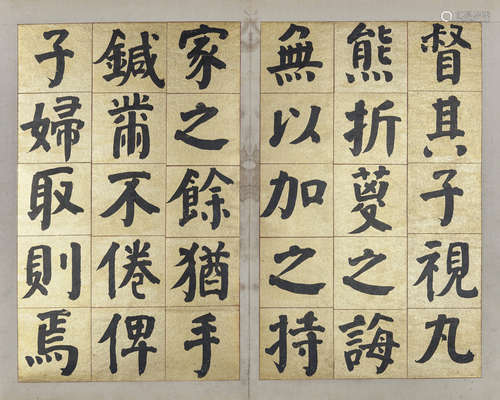 督其子視丸
熊折葼之誨
無以加之持
家之餘猶手
鍼黹不倦俾
子婦取則焉